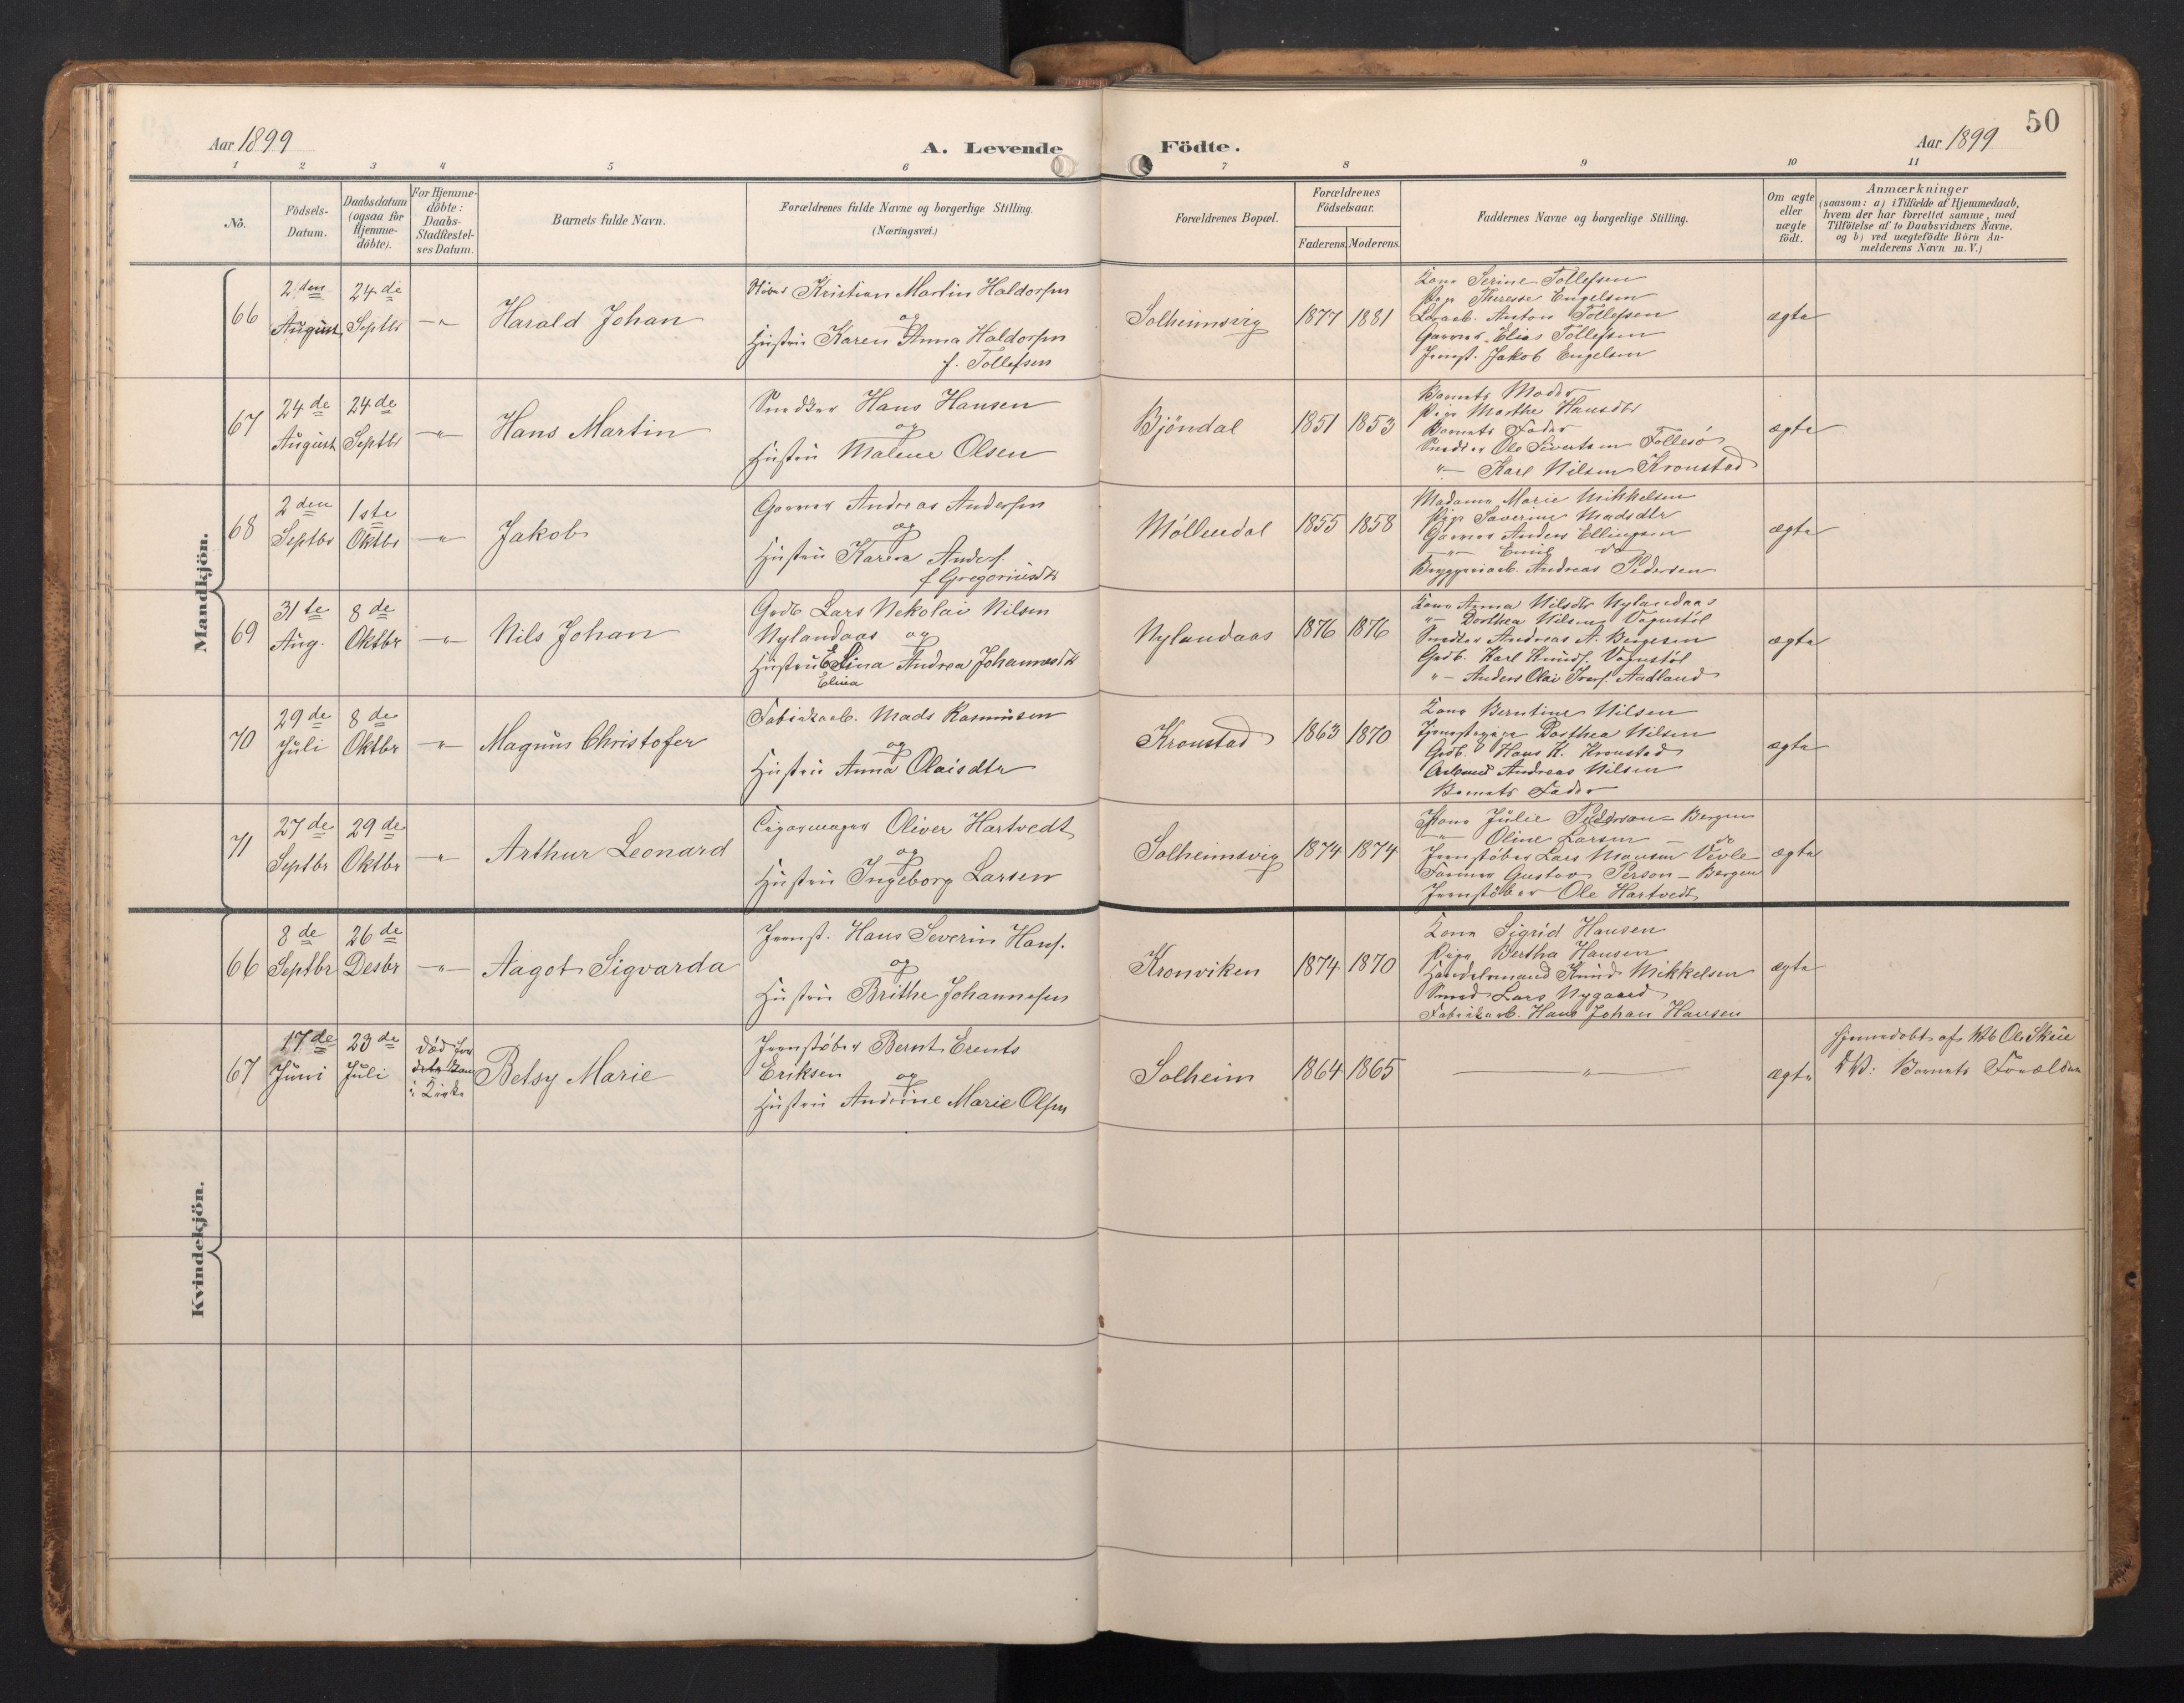 50
Aar 1899
A. Levende Födte.
Aar 1899
1 2 3 4 5 6 7 8 9 10 11
No.
Födsels-
Datum.
Daabsdatum
(ogsaa for
Hjemme-
döbte).
For Hjemme-
döbte:
Daabs-
Stadfæstel-
ses Datum.
Barnets fulde Navn.
Forældrenes fulde Navne og borgerlige Stilling.
(Næringsvei.)
Forældrenes Bopæl.
Forældrenes
Födselsaar.
Faderens. Moderens.
Faddernes Navne og borgerlige Stilling.
Om ægte
eller
uægte
födt.
Anmærkninger
(saasom: a) i Tilfælde af Hjemmedaab,
hvem der har forrettet samme, med
Tilföielse af to Daabsvidners Navne.
og b) ved uægtefödte Börn An-
melderens Navn m. V.)
Mandkjön.
66
2den
August
24de
Septbr
-"-
Harald Johan
Kristian Martin Haldorsen
og
Hustru Karen Anna Haldorsen
f. Tollefsen
Solheimsvig
1877 1881
Kone Serine Tollefsen
Pige Theresse Engelsen
Anton Tollefsen
Garver Elias Tollefsen
Jernst. Jakob Engelsen
ægte
67
24de
August
24de
Septbr
-"-
Hans Martin
Snedker Hans Hansen
og
Hustru Malene Olsen
Bjöndal
1851 1853
Barnets Moder
Pige Marthe Hansdtr
Barnets Fader
Snedker Ole Sivertsen Follesö
"- Karl Nilsen Kronstad
ægte
68
2den
Septbr
1ste
Oktbr
-"-
Jakob
Garver Andreas Andersen
og
Hustru Karen Anders.
f Gregoriusdtr
Möllendal
1855 1858
Madame Marie Mikkelsen
Pige Saverine Madsdtr
Garver Anders Ellingsen
-"- Emil do
Bryggeriarb. Andreas Pedersen
ægte
69
31te
Aug.
8de
Oktbr
-"-
Nils Johan
Grdb Lars Nekolai Nilsen
Nylandaas og
Hustru Elina Andrea Johannesdtr
Elina
Nylandaas
1876 1876
Kone Anna Nilsdtr Nylandaas
"- Dorthea Nilsen Vognstöl
Snedker Andreas A. Bergesen
Grdb. Karl Knuds. Vognstöl
"- Anders Olai Ivers. Aadland
ægte
70
29de
Juli
8de
Oktbr
-"-
Magnus Christofer
Fabrikarb. Mads Rasmussen
og
Hustru Anna Olaisdtr
Kronstad
1863 1870
Kone Berntine Nilsen
Tjenestepige Dorthea Nilsen
Grdb. Hans K. Kronstad
Arbmd Andreas Nilsen
Barnets Fader
ægte
71
27de
Septbr
29de
Oktbr
-"-
Arthur Leonard
Cigarmager Oliver Hartvedt
og
Hustru Ingeborg Larsen
Solheimsvig
1874 1874
Kone Julie Pederson - Bergen
-"- Oline Larsen - do
Jernstöber Lars Monsen Vevle
Former Gustav Person - Bergen
Jernstöber Ole Hartvedt
ægte
Kvindekjön.
66
8de
Septbr
26de
Desbr
-"-
Aagot Sigvarda
Jernst. Hans Severin Hans.
og
Hustru Brithe Johannesen
Kronviken
1874 1870
Kone Sigrid Hansen
Pige Bertha Hansen
Handelsmand Knud Mikkelsen
Smed Lars Nygaard
Fabrikarb. Hans Johan Hansen
ægte
67
17de
Juni
23de
Juli
död før
i Kirke
Betsy Marie
Jernstöber Bernt Erents
Eriksen og
Hustru Andrine Marie Olsen
Solheim
1864 1865
-"-
ægte
Hjemmedöbt af Ole Skeie
Barnets Forældre